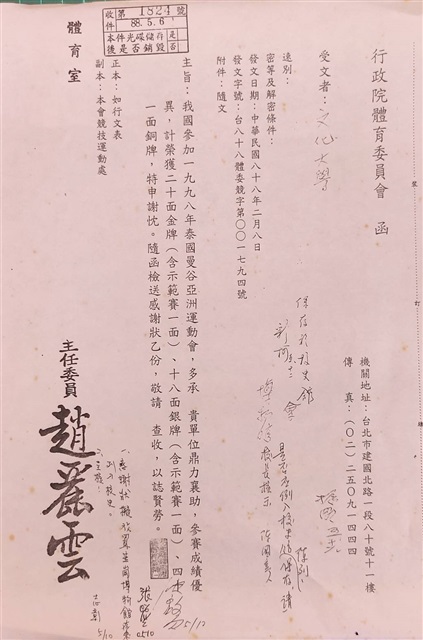 收件 第1824號
88.5.6
本件光碟儲存後是否銷毀 是 否
行政院體育委員會 函
機關地址：台北市建國北路一段八十號十一樓
傳 真：(〇二)二五〇九一四四四
受文者：文化大學
速別：
密等及解密條件：
發文日期：中華民國八十八年二月八日
發文字號：台八十八體委競字第〇〇一七九四號
附件：隨文
主旨：我國參加一九九八年泰國曼谷亞洲運動會，多承 貴單位鼎力襄助，參賽成績優
異，計榮獲二十面金牌(含示範賽一面)、十八面銀牌(含示範賽一面)、四十
一面銅牌，特申謝忱。隨函檢送感謝狀乙份，敬請 查收，以誌賢勞。
正本：如行文表
副本：本會競技運動處
體育室
主任委員 趙麗雲
保存於校史館
是否為列入校史館保存 請
5/10
0510
5/10